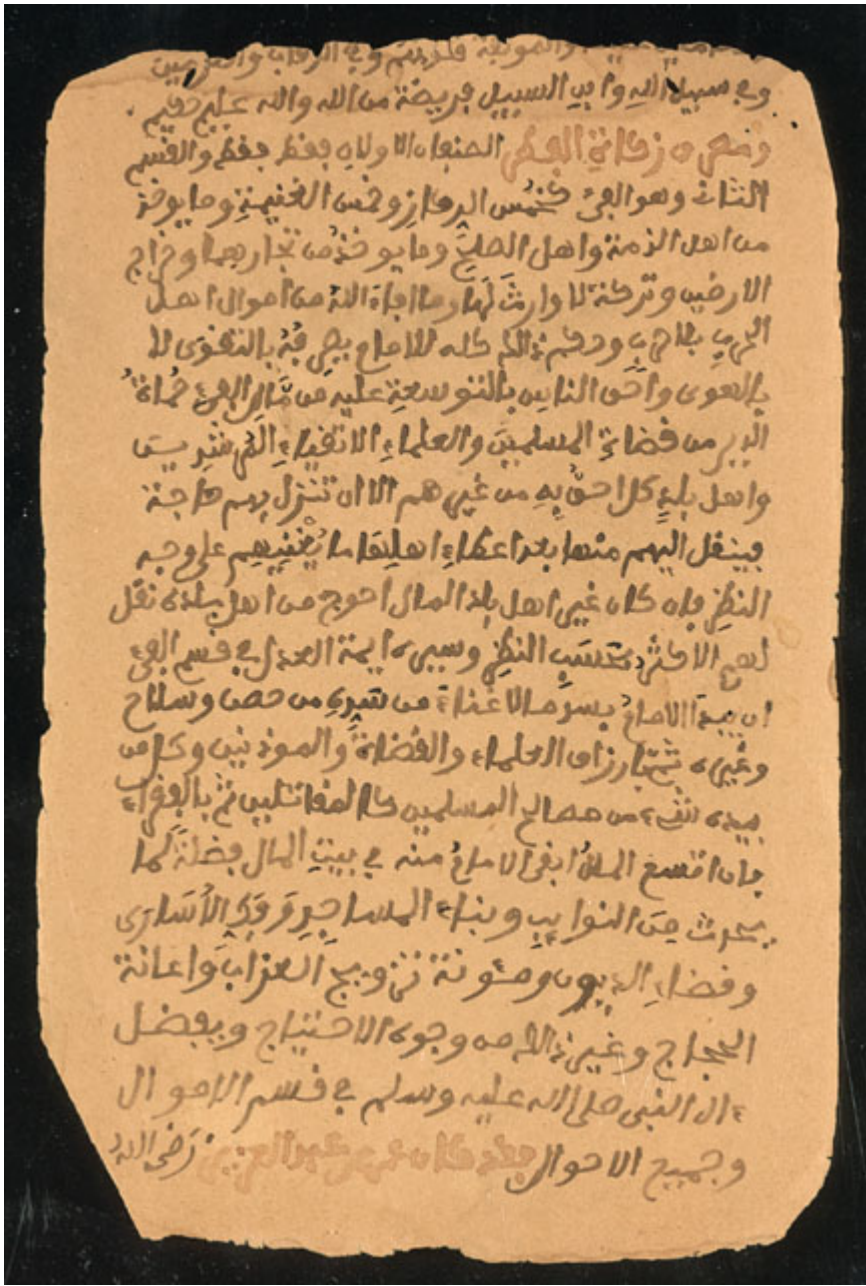 والمؤلفة قلوبهم وفي الرقاب والغرمين
وفي سبيل الله وابن السبيل فريضة من الله والله عليم حكيم
ومصرف زكاة الفطر الصنفان الاولان فقط فقط والقسم
الثاني وهو الفيء خمس الركاز وخمس الغنيمة وما يوخذ
من اهل الذمة واهل الصلح وما يوخذ من تجارهما وخراج
الارضين وتركة لا وارث لها وما افاء الله من اموال اهل
الحرب بلا حرب وحكم ذلك كله للامام يصرفه بالتقوى لا
بالهوى واحق الناس بالتوسعة عليه من مال الفيء حماة
الدين من قضاة المسلمين والعلماء الاتقياء
واهل بلد كل احق به من غيرهم الا ان تنزل بهم حاجة
فينقل اليهم منها بعد اعطاء اهلها ما يغنيهم على وجه
النظر فان كان غير اهل بلد المال احوج من اهل بلده نقل
لهم الاكثر بحسب النظر وسيرة ايمة العدل في قسم الفيء
ان يبدأ الامام بسد ما لا غناء من حصن وسلاح
وغيره ثم بارزاق العلماء والقضاة والموذنين وكل من
بيده شيء من مصالح المسلمين كالمقاتلين ثم بالفقراء
فان اتسع المال ابقى الامام منه في بيت المال فضلة لما
يحدث من النوايب وبناء المساجد وفك الأسارى
وقضاء الديون ومئونة تزويج العزاب واعانة
الحجاج وغير ذلك من وجوه الاحتياج ويفضل
ءال النبي صلى الله عليه وسلم في قسم الاموال
وجميع الاحوال فقد كان عمر بن عبد العزيز رضي الله